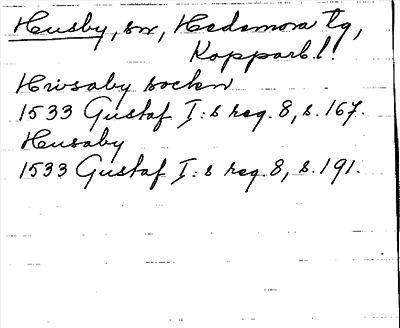 Husby, sn, Hedemora tg,
Kopparb. l.
Hwsaby socken
1533 Gustaf I:s reg. 8, s. 167.
Husaby
1533 Gustaf I:s reg. 8, s. 191.